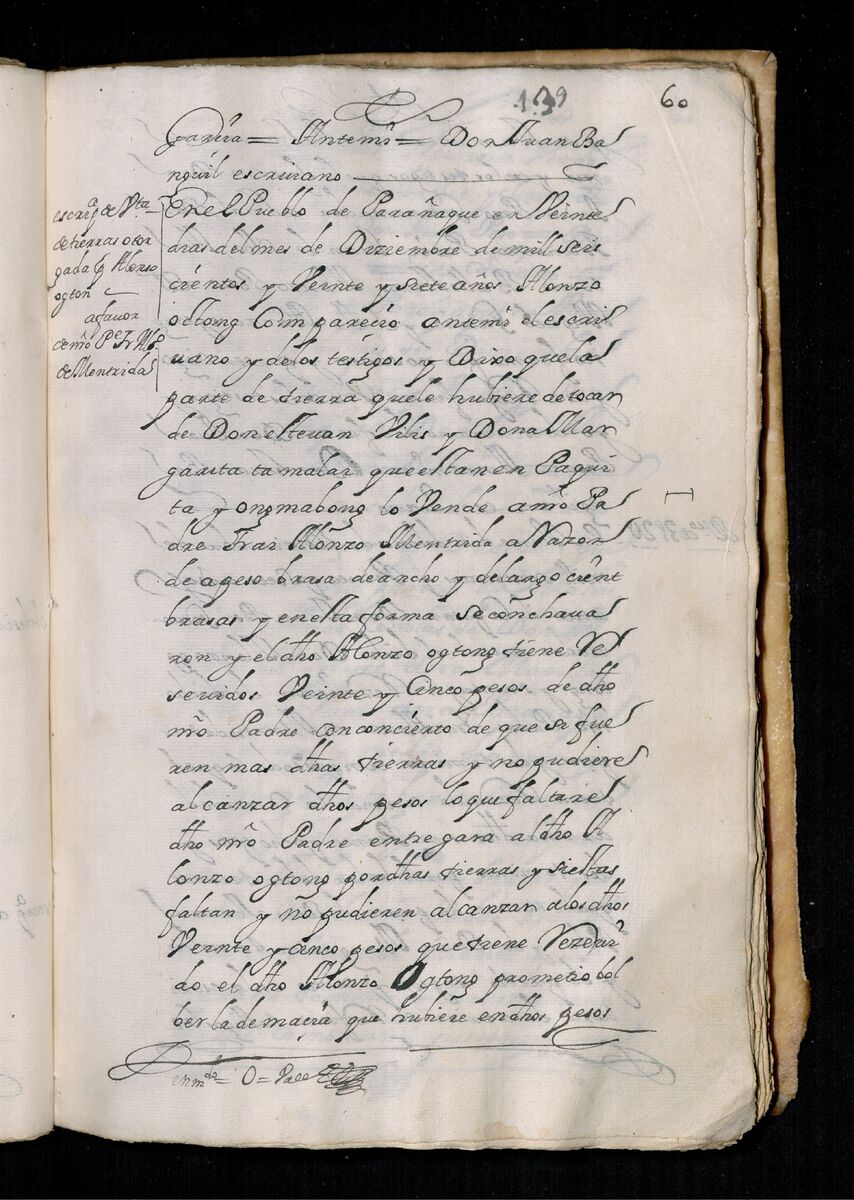 139
60
Garcia = Antemi = Don Juan Ba
ngȳil escriuano
escriª de Vta
de tierras otor
gada pr Alonso
ogton
a favor
de nrō Pe Fr Alº
de Mentrida
En el Pueblo de Parañaque en Veinte
dias del mes de Diziembre de mill seis
cientos y Veinte y siete años Alonzo
ogtong Comparecio antemi el escri
uano y delos testigos y Dixo que la
parte de tierra quele hubiere de tocar
de Don esteuan Pilis y Dona Mar
garita tamalai que estan en Paqui
ta y ongmabong lo Vende a nrō Pa
dre Frai Alonzo Mentrida a Razon
de a peso brasa de ancho y de largo cient
brasas y en esta forma se conchaua
ron y el dho Alonzo ogtong tiene Re
seuidos Veinte y Cinco pesos de dho
nrō Padre con concierto de que si fue
ren mas dhas tierras y no pudiere
alcanzar dhos pesos lo que faltare
dho nrō Padre entregara al dho A
lonzo ogtong por dhas tierras y si estas
faltan y no pudieren alcanzar a los dhos
Veinte y cinco pesos que tiene Rezeui
do el dho Alonzo Ogtong prometio bol
ber la demacia que hubiere en dhos pesos
enmdo = O = Vale